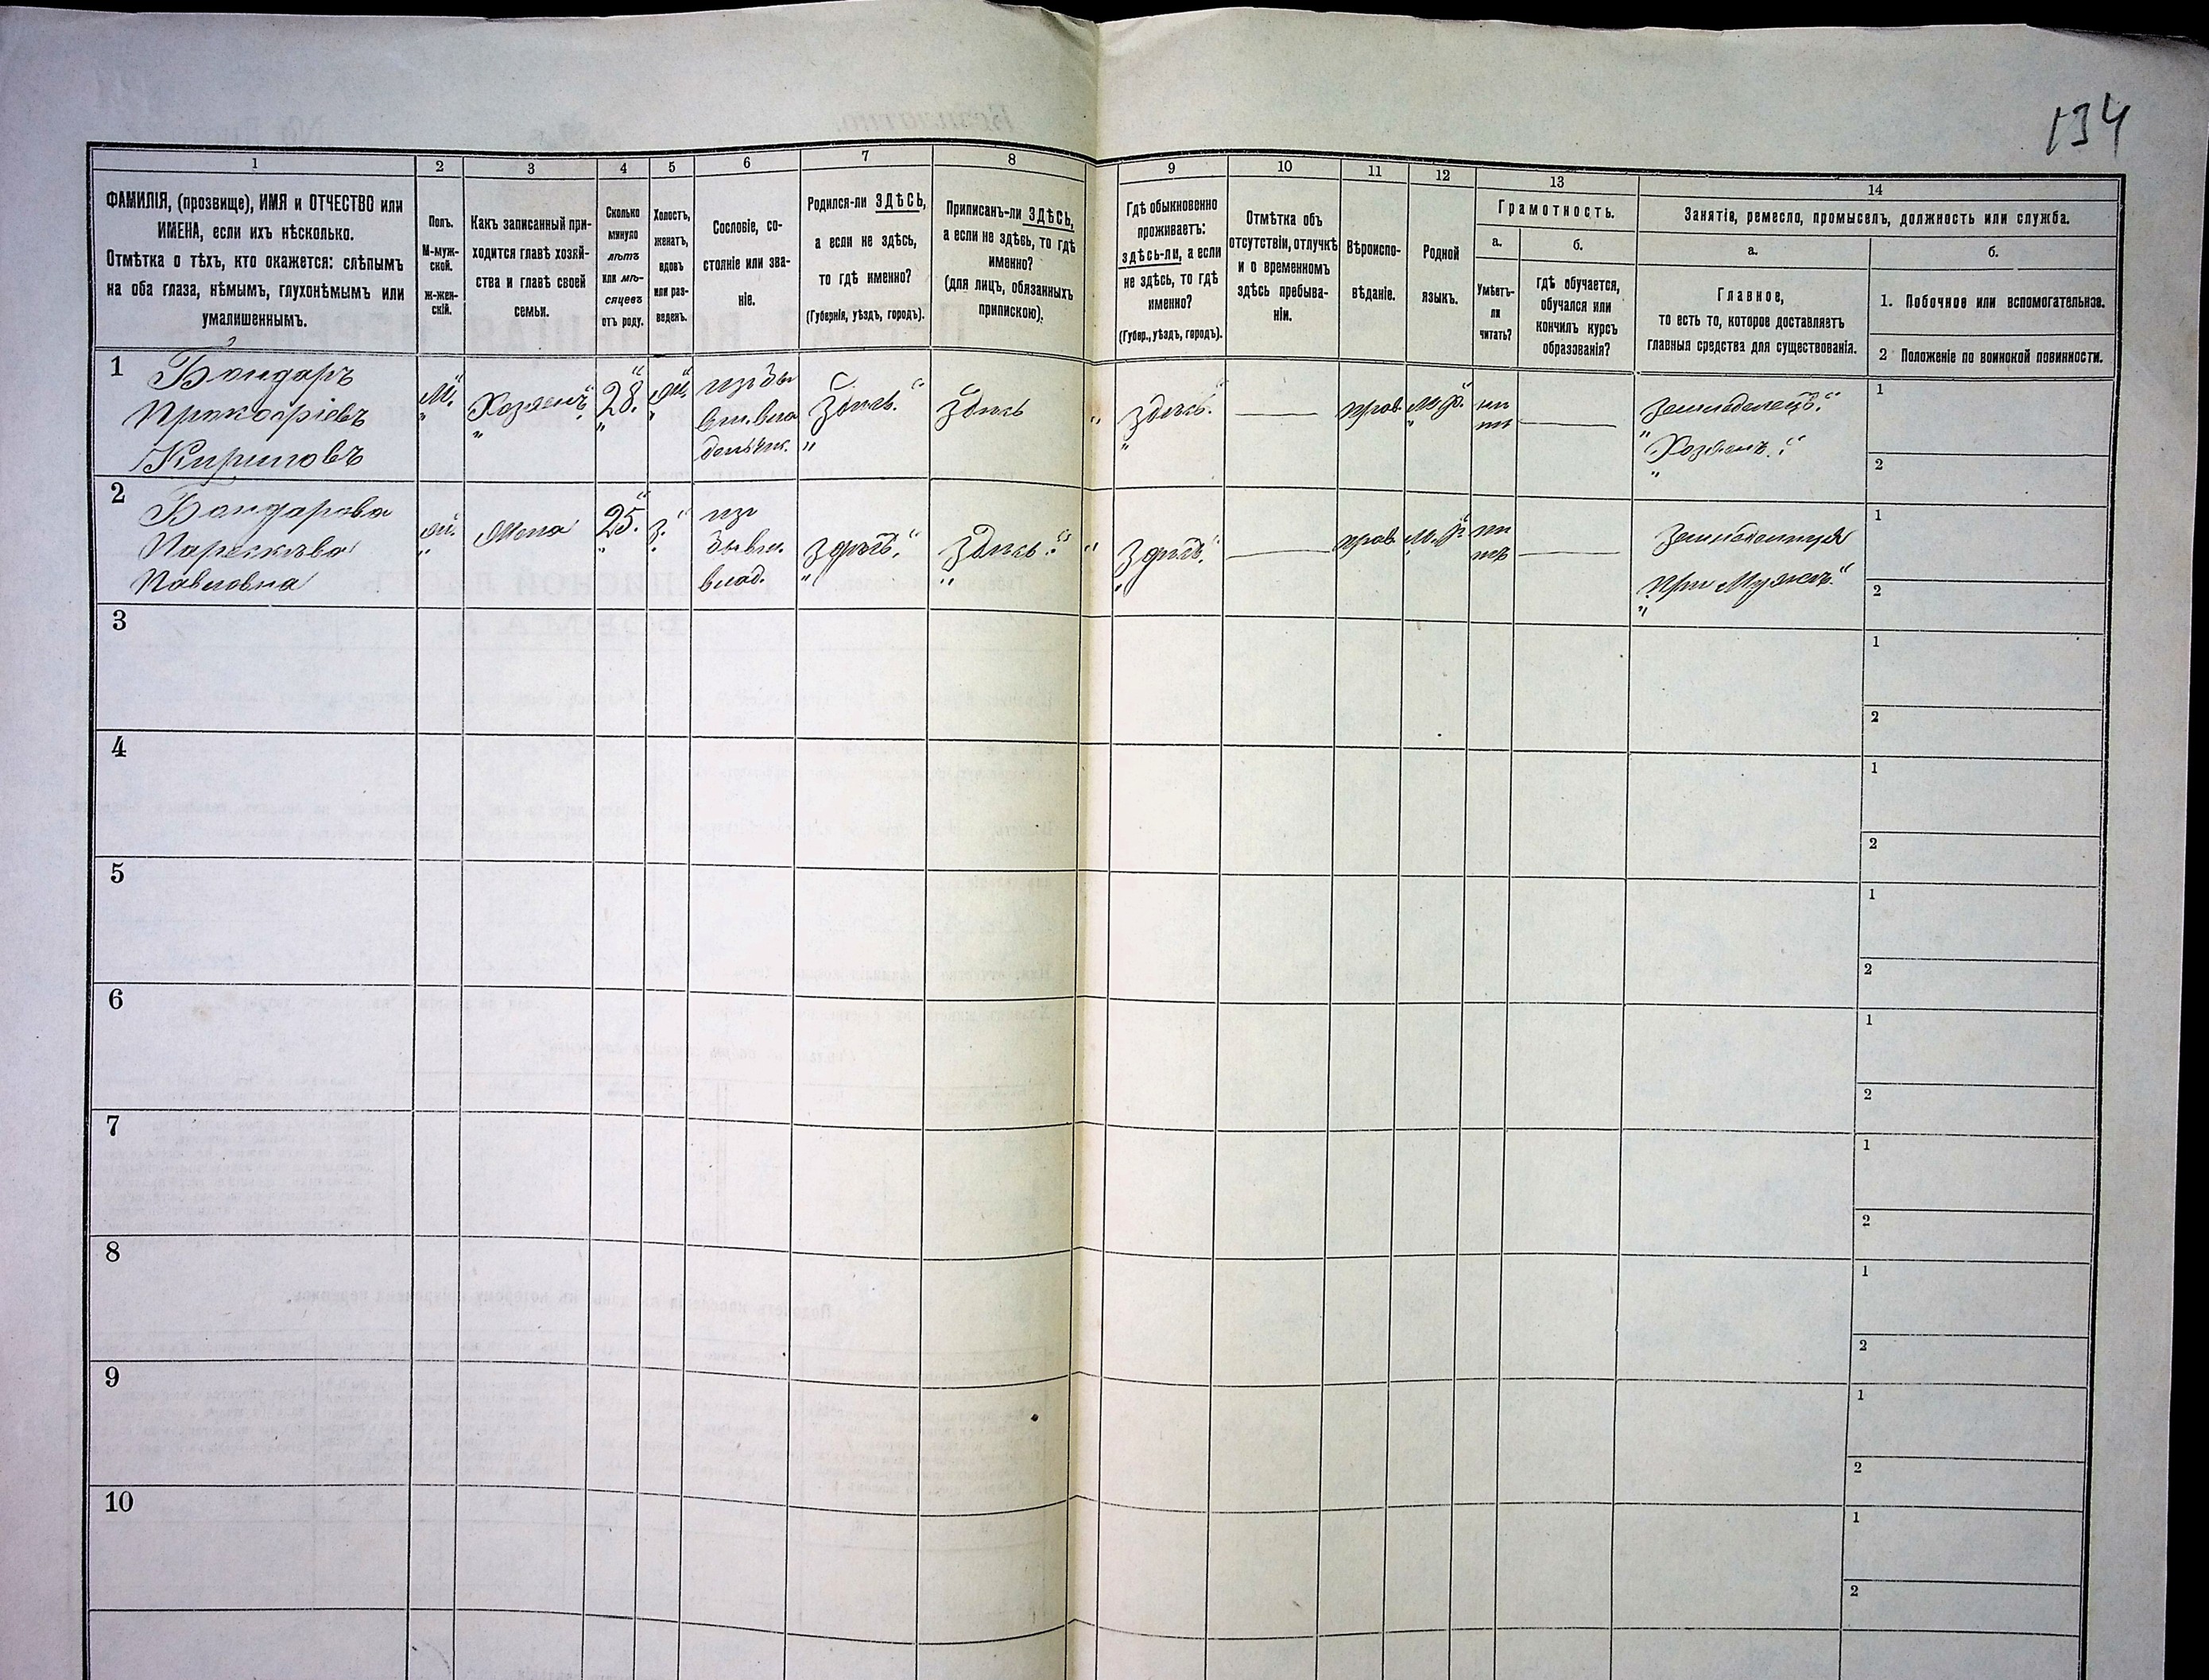 134
1
2
3
4
5
6
7
8
9
10
11
12
13
14
ФАМИЛІЯ, (прозвище), ИМЯ и ОТЧЕСТВО или
ИМЕНА, если ихъ нѣсколько.
Отмѣтка о тѣхъ, кто окажется: слѣпымъ
на оба глаза, нѣмымъ, глухонѣмымъ или
умалишеннымъ.
Полъ.
М-муж-
ской.
ж-жен-
скій.
Какъ записанный при-
ходится главѣ хозяй-
ства и главѣ своей
семьи.
Сколько
минуло
лѣтъ
или мѣ-
сяцевъ
отъ роду.
Холостъ,
женатъ,
вдовъ
или раз-
веденъ.
Сословіе, со-
стояніе или зва-
ніе.
Родился-ли ЗДѢСЬ,
а если не здѣсь,
то гдѣ именно?
(Губернія, уѣздъ, городъ).
Приписанъ-ли ЗДѢСЬ,
а если не здѣсь, то гдѣ
именно?
(для лицъ, обязанныхъ
припискою).
Гдѣ обыкновенно
проживаетъ:
здѣсь-ли, а если
не здѣсь, то гдѣ
именно?
(Губер., уѣздъ, городъ).
Отмѣтка объ
отсутствіи, отлучкѣ
и о временномъ
здѣсь пребыва-
ніи.
Вѣроиспо-
вѣданіе.
Родной
языкъ.
Грамотность.
а.
Умѣетъ-
ли
читать?
б.
гдѣ обучается,
обучался или
кончилъ курсъ
образованія?
Занятіе, ремесло, промыселъ, должность или служба.
а.
Главное,
то есть то, которое доставляетъ
главныя средства для существованія.
б.
1. Побочное или вспомогательное.
2 Положеніе по воинской повинности.
1
Бондаръ
Прокофіевъ
Кириловъ
М.
Хозяинъ
28.
из бы
вш. вла
дельчк.
здесь.
здесь
здесь.
прав.
М.р.
не
тъ
Земледелецъ.
Хозяинъ.
1
2
2
Бондарева
Параскева
Павловна
Жена
25.
з.
из
бывш.
влад.
здесь.
здесь.
здесь.
прав.
М.р.
не
тъ
Земледелица
При Мужѣ.
1
2
3
1
2
4
1
2
5
1
2
6
1
2
7
1
2
8
1
2
9
1
2
10
1
2